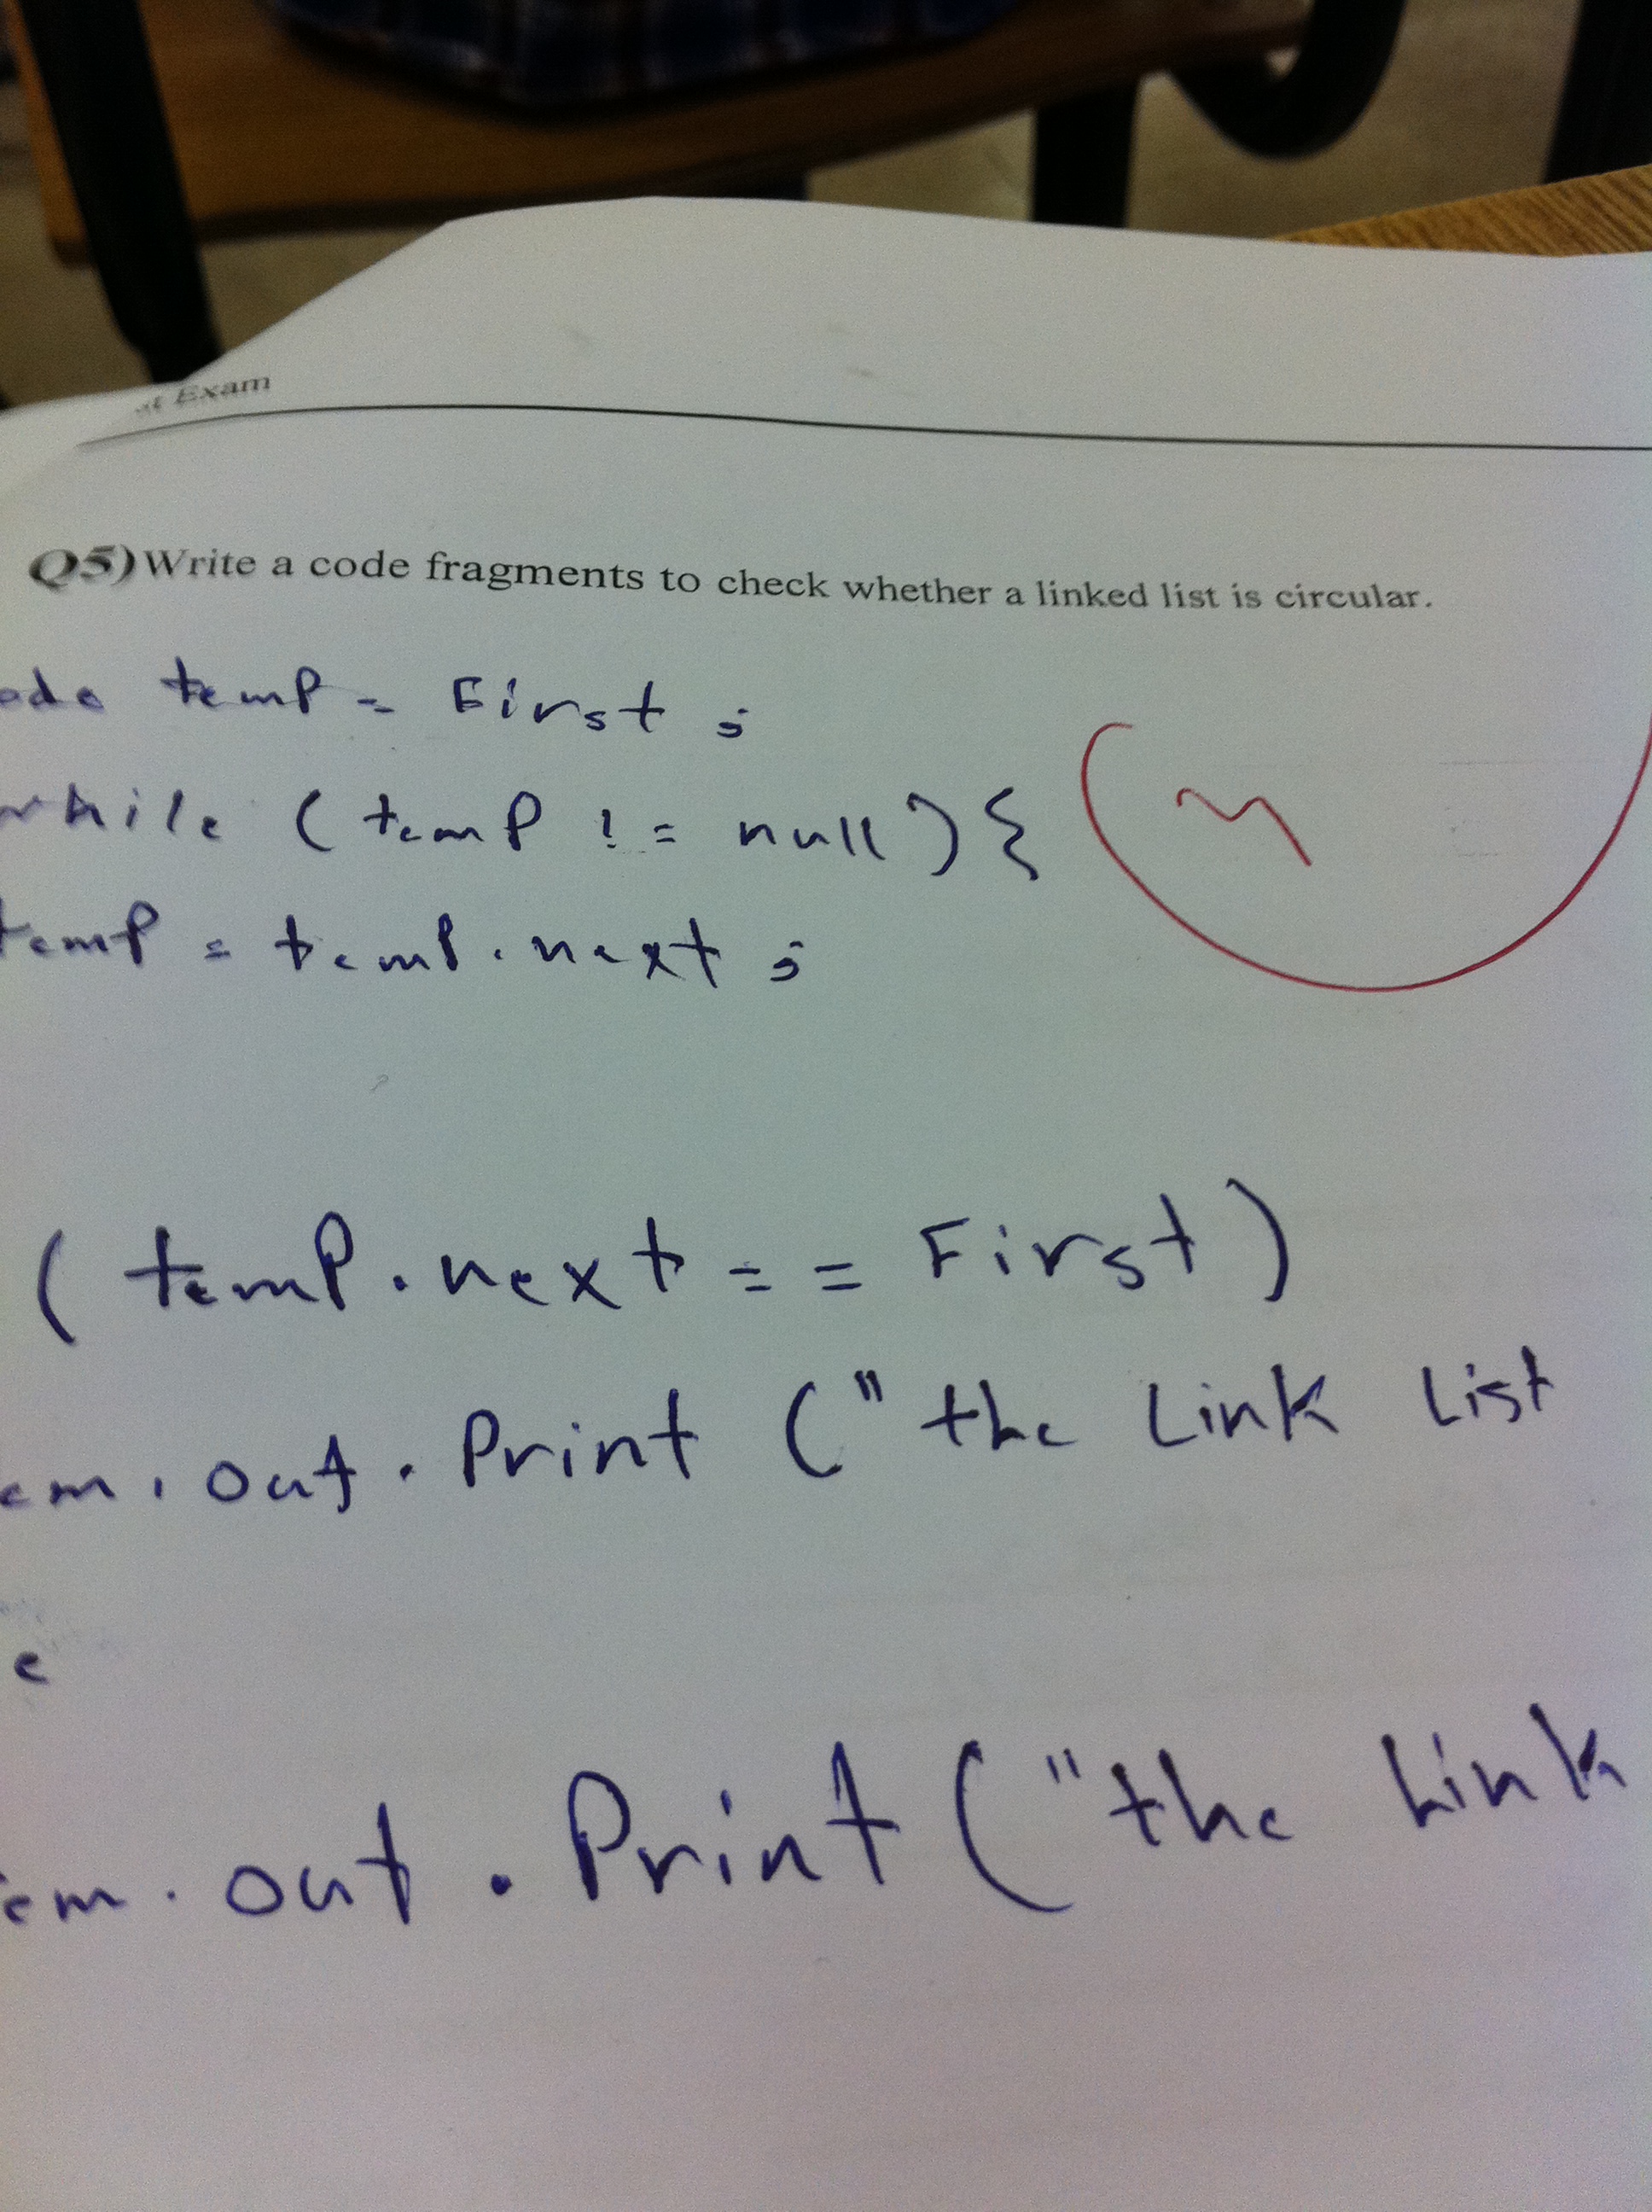 Exam
Q5) Write a code fragments to check whether a linked list is circular.
temp = First ;
while ( temp != null ) {
temp = temp.next ;
( temp.next == First )
out . Print ( " the Link List
out . Print ( " the Link